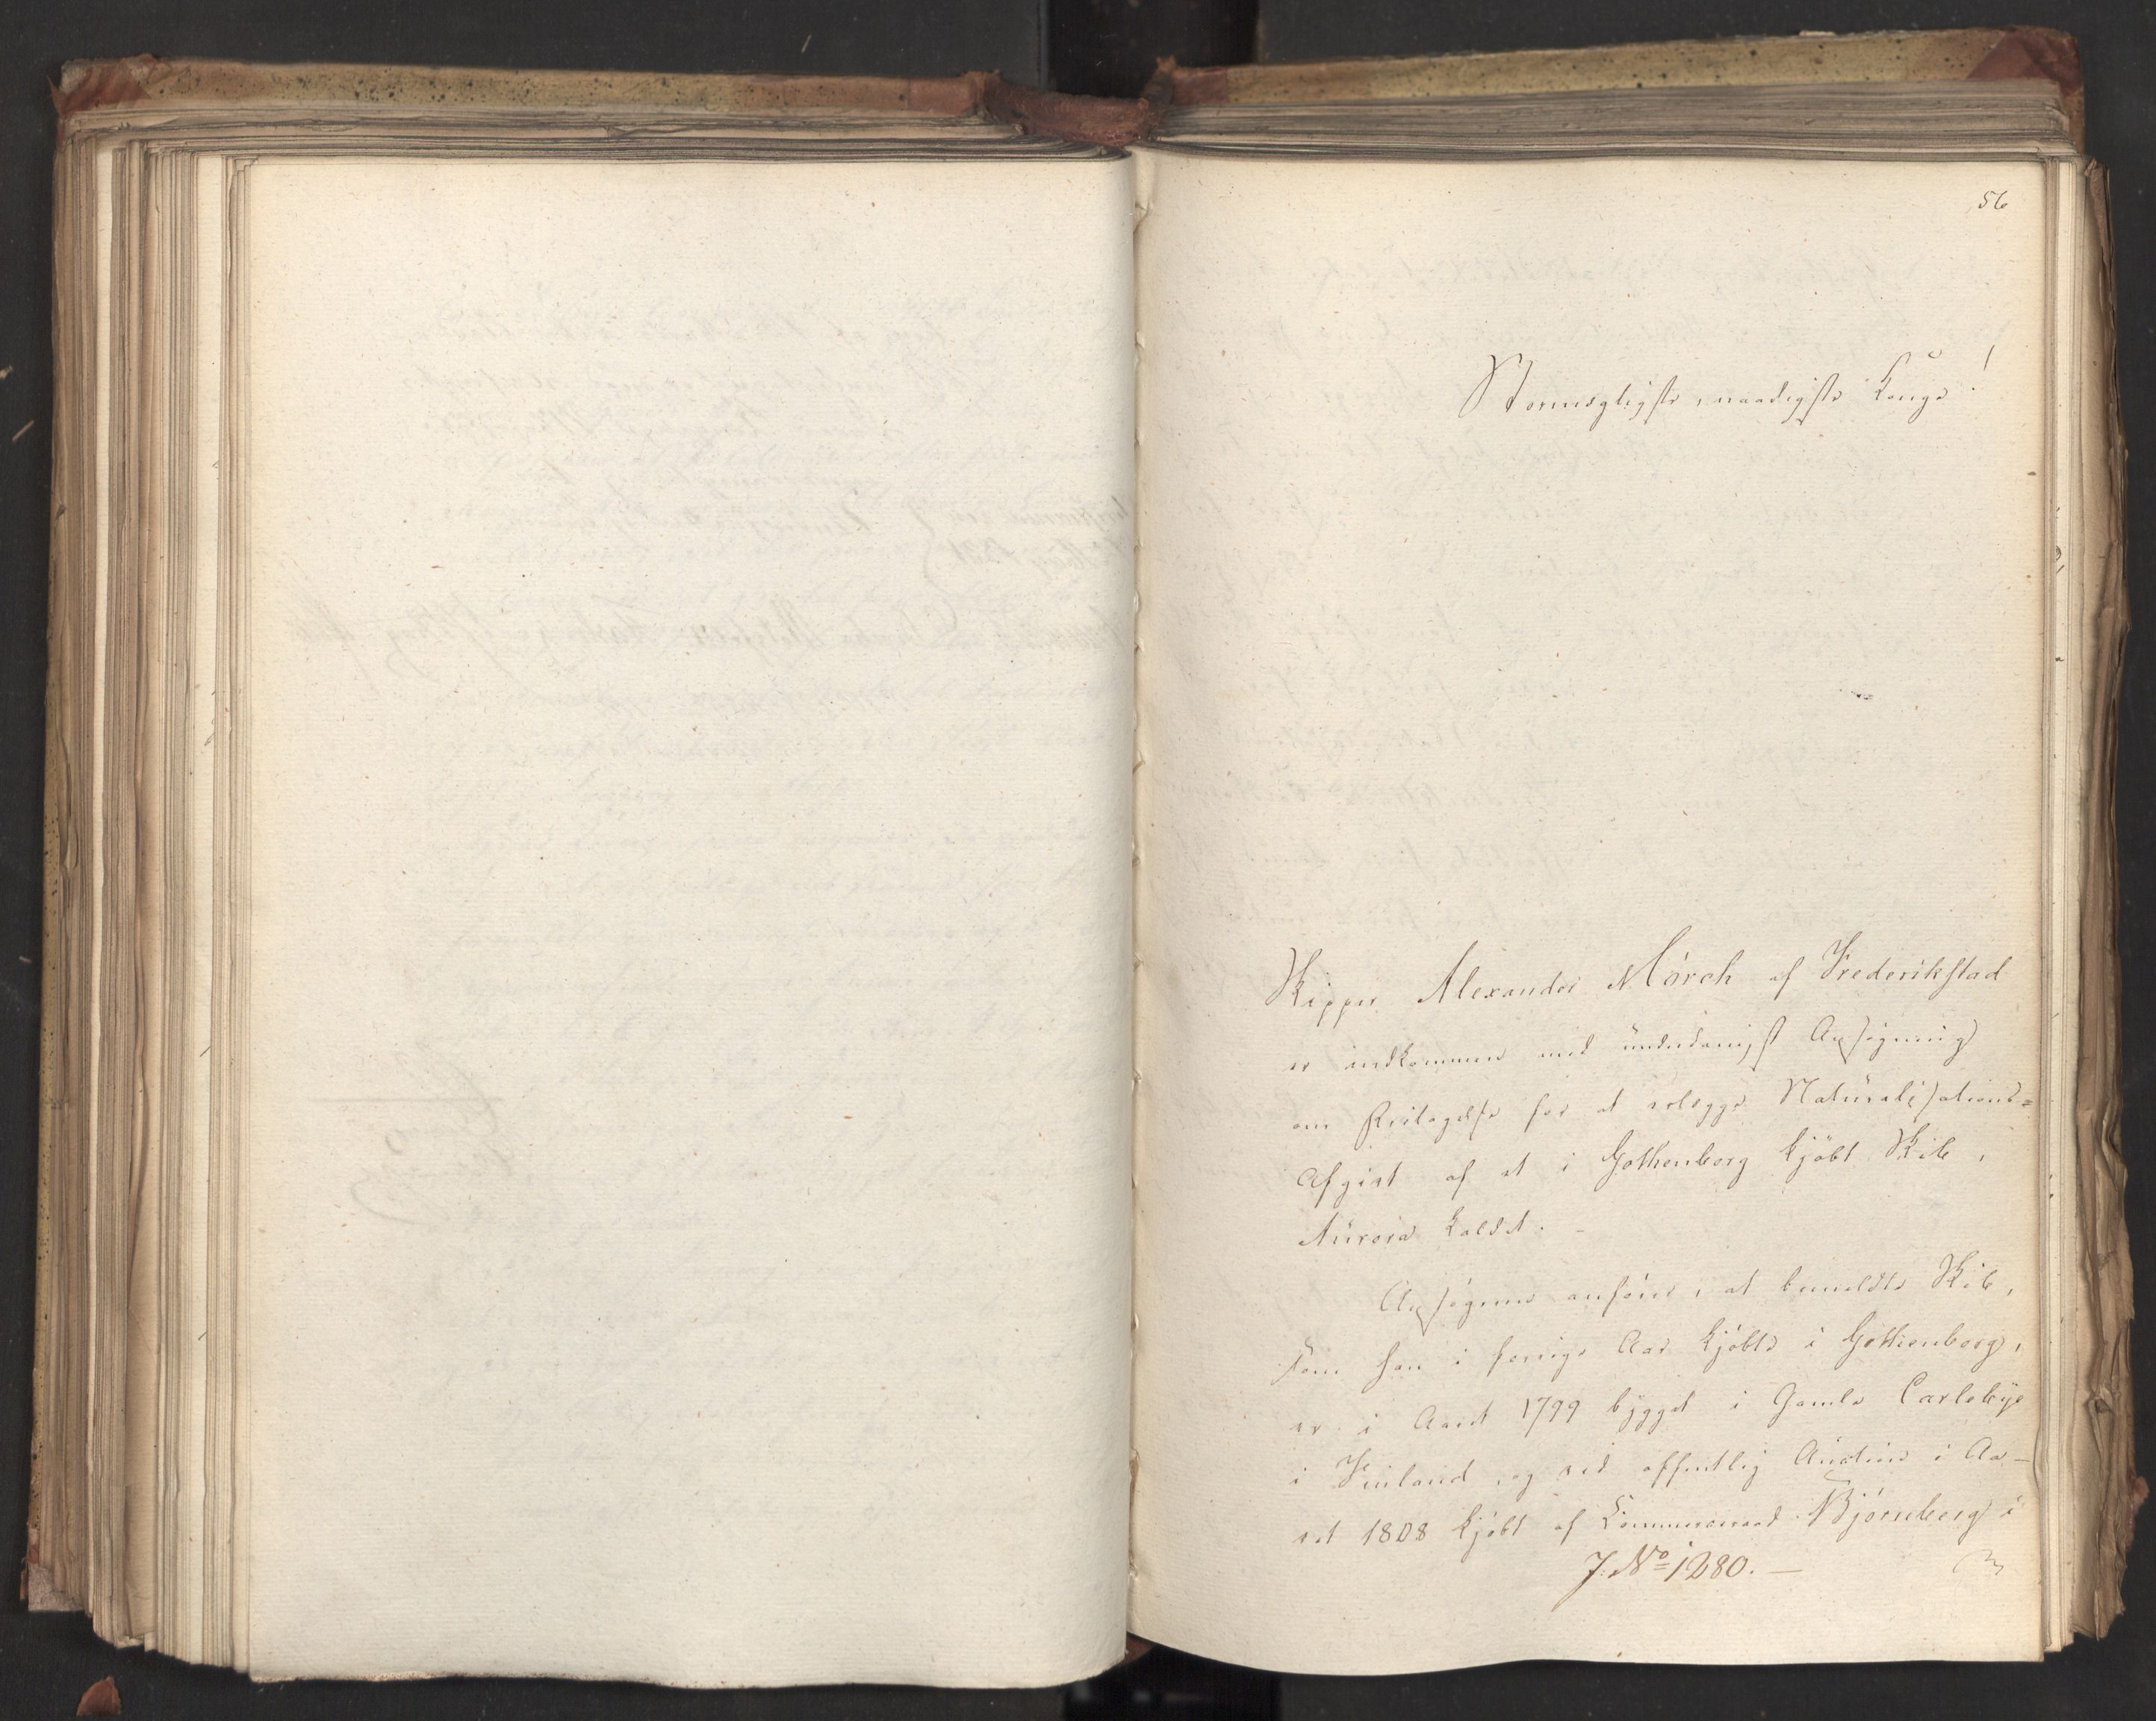 56
Stormægtigste, naadigste Konge!
Skipper Alexander Mörch af Frederikstad
er indkommen med underdanigst Ansøgning
om Fritagelse for at erlægge Naturalisations-
Afgivt af et i Gothenborg kjöbt Skib,
Aurora kaldet. -
Ansøgeren anförer, at bemeldte Skib,
som han i forrige Aar kjöbte i Gothenborg,
er i Aaret 1799 bygget i Gamle Carlebye
i Finland, og ved offentlig Auction i Aa-
ret 1808 kjöbt af Commerceraad Björnberg i
J. No 1280. -